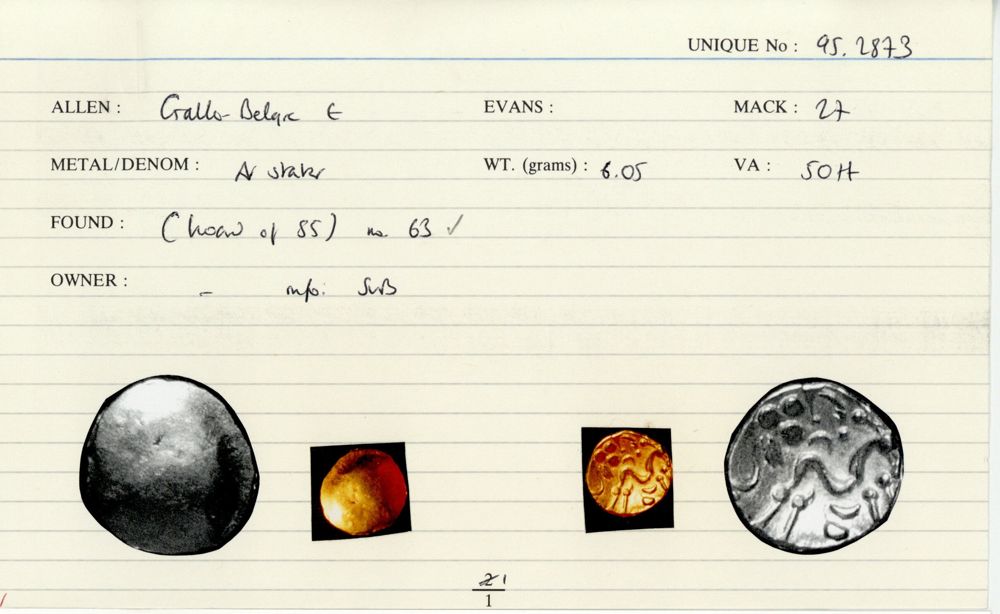 UNIQUE No : 95.2873
ALLEN : Gallo-Belgic E EVANS : MACK : 27
METAL/DENOM : AV stater WT. (grams) : 6.05 VA : 50H
FOUND : (hoard of 85) no. 63 ✓
OWNER : - info: SWB
1
1